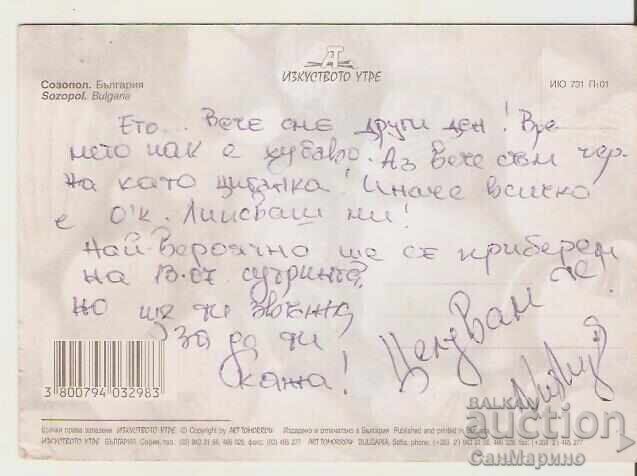 ИЗКУСТВОТО УТРЕ
Созопол. България
Sozopol. Bulgaria
ИЮ 731 П:01
Ето... Вече сме други ден! Вре
мето пак е хубаво. Аз вече съм чер-
на като циганка! Иначе всичко
е О'К. Липсваш ми!
Най-вероятно ще се прибера
на 13.07 сутринта,
но ще ти звънна,
за да ти
кажа!
Целувам те!
3 800794 032983
Всички права запазени ИЗКУСТВОТО УТРЕ © Copyright by ART TOMORROW Издадено и отпечатано в България Published and printed in
ИЗКУСТВОТО УТРЕ БЪЛГАРИЯ, София, тел.
ART TOMORROW BULGARIA, Sofia, phone:
BALKAN
auction
СанМарино